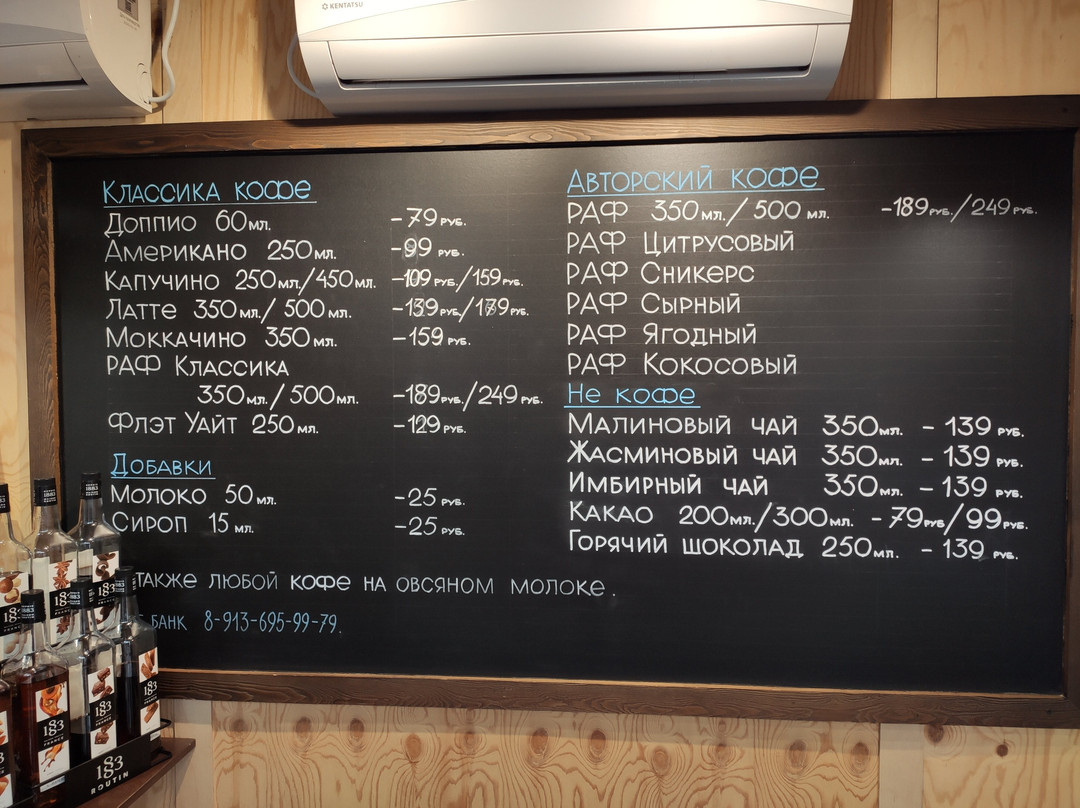 KENTATSU
Классика кофе
Доппио 60мл. -79 руб.
Американо 250мл. -99 руб.
Капучино 250мл./450мл. -109 руб./159 руб.
Латте 350мл./500мл. -139 руб./189 руб.
Моккачино 350мл. -159 руб.
РАФ Классика
350мл./500мл. -189 руб./249 руб.
Флэт Уайт 250мл. -129 руб.
Добавки
Молоко 50мл. -25 руб.
Сироп 15мл. -25 руб.
Авторский кофе
РАФ 350мл./500мл. -189 руб./249 руб.
РАФ Цитрусовый
РАФ Сникерс
РАФ Сырный
РАФ Ягодный
РАФ Кокосовый
Не кофе
Малиновый чай 350мл. - 139 руб.
Жасминовый чай 350мл. - 139 руб.
Имбирный чай 350мл. - 139 руб.
Какао 200мл./300мл. - 79руб/99руб.
Горячий шоколад 250мл. - 139 руб.
также любой кофе на овсяном молоке.
банк 8-913-695-99-79.
1883
1883
1883
1883
1883
1883
ROUTIN